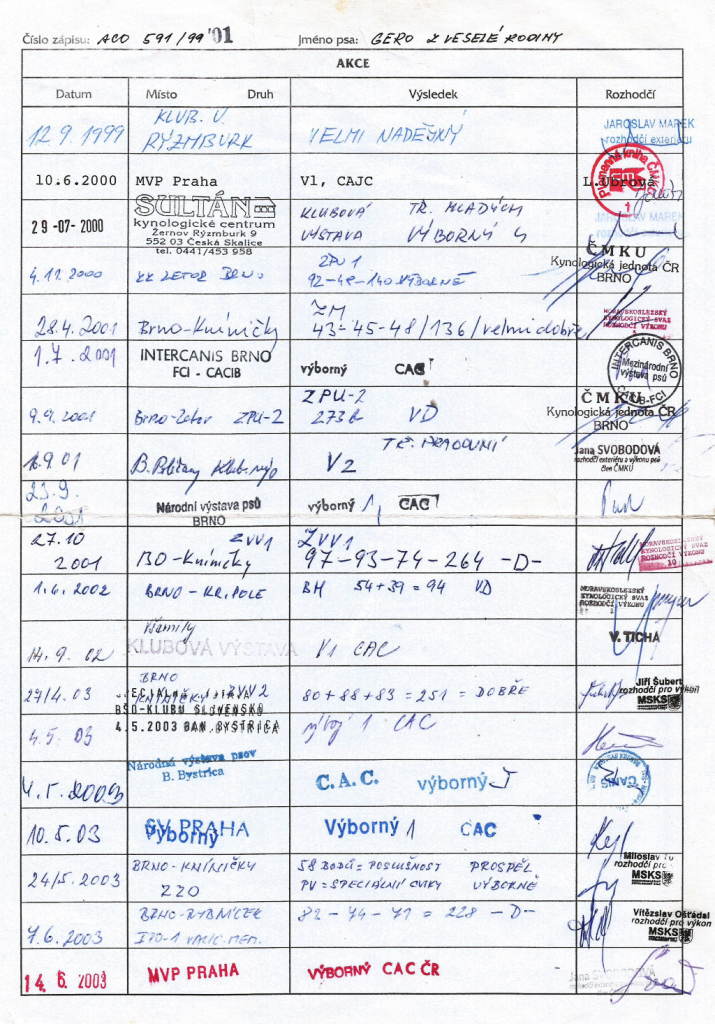 Číslo zápisu: ACO 591/99/01 Jméno psa: GERO Z VESELÉ RODINY
AKCE
Datum Místo Druh Výsledek Rozhodčí
12.9.1999 KLUB. V. RÝZMBURK VELMI NADĚJNÝ JAROSLAV MAREK
rozhodčí exteriéru
Plemenná kniha ČMKU
1
10.6.2000 MVP Praha V1, CAJC L.Ubrová
29-07-2000 SULTÁN
kynologické centrum
Žernov Rýzmburk 9
552 03 Česká Skalice
tel. 0441/453 958
KLUBOVÁ TŘ. MLADÝCH
VÝSTAVA VÝBORNÝ 4
JAROSLAV MAREK
4.12.2000 KK ZETOR BRNO ZPU 1
92-48-140 VÝBORNĚ
ČMKU
Kynologická jednota ČR
BRNO
28.4.2001 Brno-Kníničky ZM
43-45-48/136/velmi dobře
MORAVSKOSLEZSKÝ
KYNOLOGICKÝ SVAZ
ROZHODČÍ VÝKONU
1.7.2001 INTERCANIS BRNO
FCI - CACIB
výborný CAC
INTERCANIS BRNO
Mezinárodní
výstava psů
CACIB-FCI
9.9.2001 Brno-Zetor ZPU-2 ZPU-2
273 b VD
ČMKU
Kynologická jednota ČR
BRNO
1.9.01 TŘ. PRACOVNÍ
V2
Jana SVOBODOVÁ
rozhodčí exteriéru a výkonu psů
člen ČMKU
23.9.
2001 Národní výstava psů
BRNO
výborný 1, CAC
27.10
2001 ZVV1
BO-Kníničky
ZVV1
97-93-74-264 -D-
MORAVSKOSLEZSKÝ
KYNOLOGICKÝ SVAZ
ROZHODČÍ VÝKONU
10
1.6.2002 BRNO-KR.POLE BH 54+39=94 VD
MORAVSKOSLEZSKÝ
KYNOLOGICKÝ SVAZ
ROZHODČÍ VÝKONU
14.9.02 Všemily
KLUBOVÁ VÝSTAVA
V1 CAC
V. TICHÁ
27/4.03 BRNO
KNÍNIČKY ZVV2
80+88+83=251=DOBŘE
Jiří Šubert
rozhodčí pro výkon
MSKS
4.5.03 SPECIÁLNA
BŠO-KLUBU SLOVENSKO
4.5.2003 BAN. BYSTRICA
1 CAC
4.5.2003 Národná výstava psov
B. Bystrica
C.A.C. výborný
10.5.03 SV PRAHA
Výborný
Výborný 1 CAC
24/5.2003 BRNO-KNÍNIČKY
ZZO
58 BODŮ=POSLUŠNOST PROSPĚL
PV=SPECIÁLNÍ CVIKY VÝBORNĚ
Miloslav
rozhodčí pro
MSKS
7.6.2003 BRNO-RYBNÍČEK
82-74-72=228-D-
Vítězslav Ošťádal
rozhodčí pro výkon
MSKS
14. 6. 2003 MVP PRAHA VÝBORNÝ CAC ČR
Jana SVOBODOVÁ